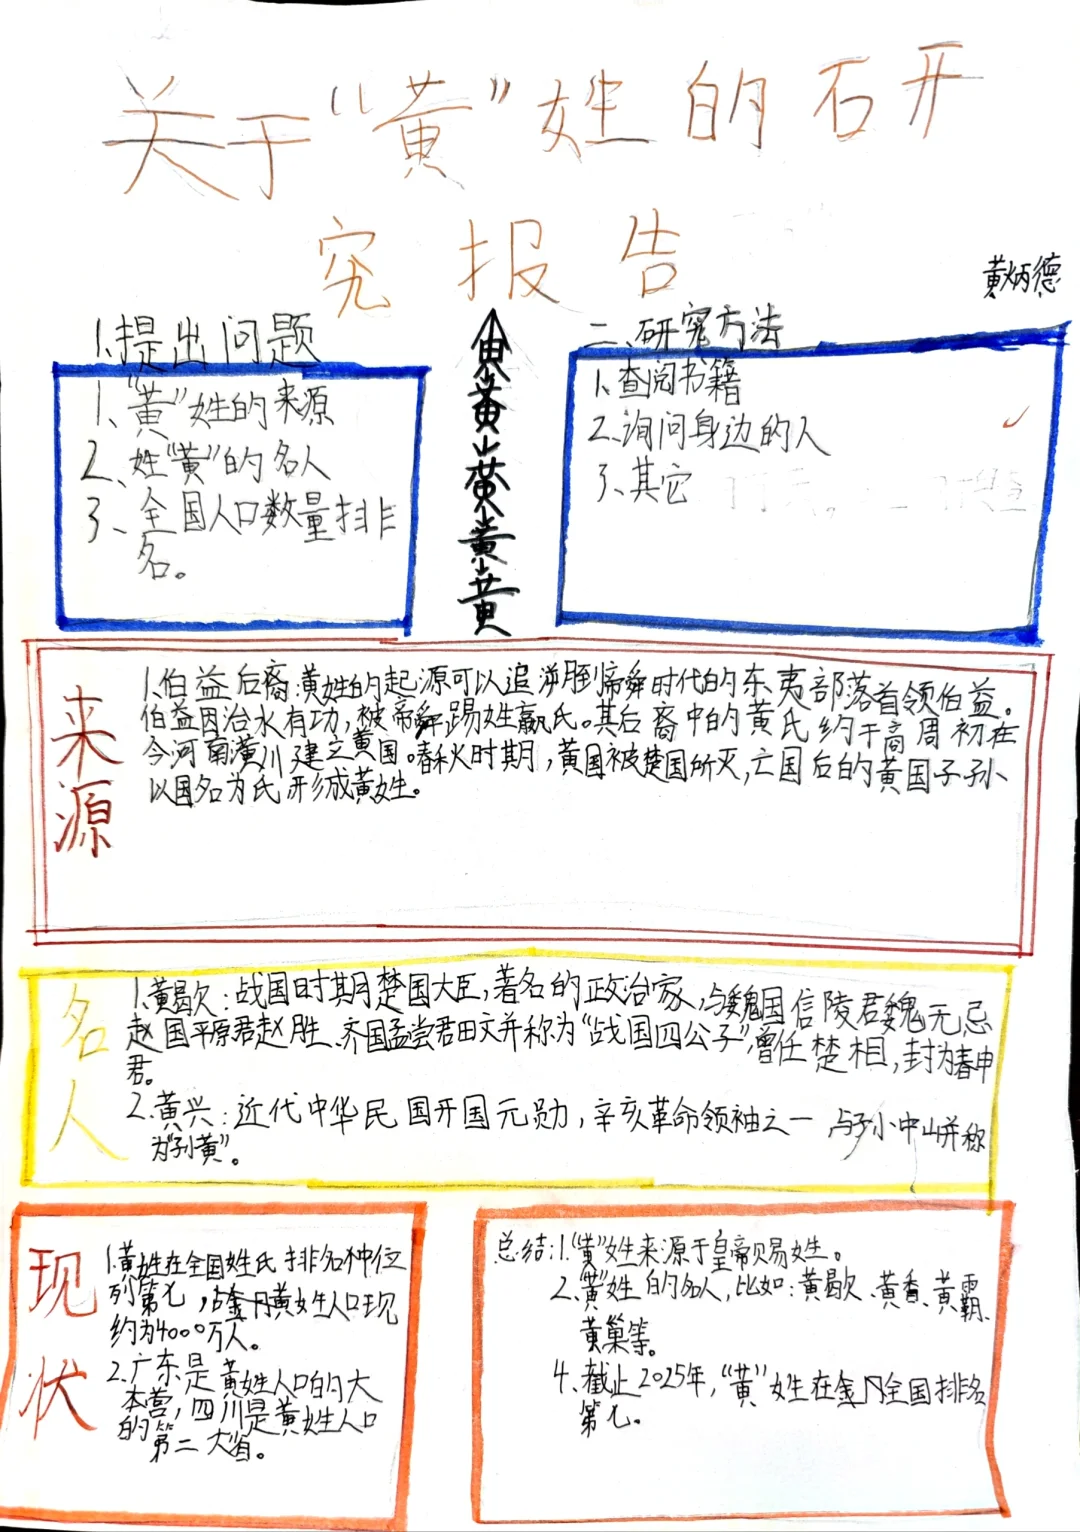 关于“黄”姓的研
究报告
黄炳德
1.提出问题
1、“黄”姓的来源
2、姓“黄”的名人
3、全国人口数量排
名。
黄黄黄黄黄
二、研究方法
1、查阅书籍
2、询问身边的人
3、其它
来源
1、伯益后裔:黄姓的起源可以追溯到帝舜时代的东夷部落首领伯益。
伯益因治水有功,被帝舜踢姓嬴氏。其后裔中的黄氏约于商周初在
今河南潢川建立黄国。春秋时期,黄国被楚国所灭,亡国后的黄国子孙
以国名为氏形成黄姓。
名人
1.黄歇:战国时期楚国大臣,著名的政治家,与魏国信陵君魏无忌
赵国平原君赵胜、齐国孟尝君田文并称为“战国四公子”,曾任楚相,封为春申
君。
2.黄兴:近代中华民国开国元勋,辛亥革命领袖之一 与孙中山并称
为“孙黄”。
现状
1.黄姓在全国姓氏排名种位
列第七,
黄姓人口现
约为4000万人。
2.广东是黄姓人口的大
本营,四川是黄姓人口
的第二大省。
总结:1.“黄”姓来源于皇帝赐姓。
2、“黄”姓的名人,比如:黄歇、黄香、黄霸、
黄巢等。
4、截止2025年,“黄”姓在
全国排名
第七。